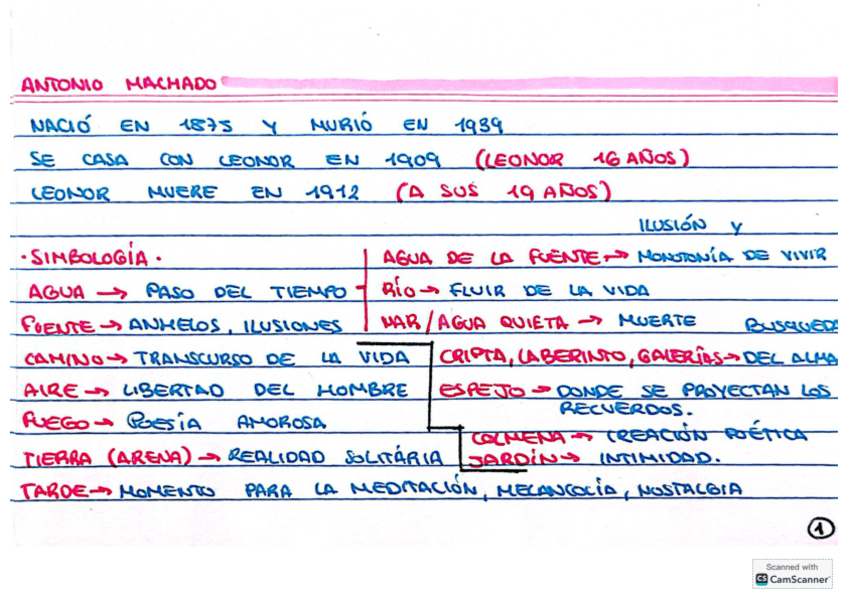 ANTONIO MACHADO
NACIÓ EN 1875 Y MURIÓ EN 1939
SE CASA CON LEONOR EN 1909 (LEONOR 16 AÑOS)
LEONOR MUERE EN 1912 (A SUS 19 AÑOS)
· SIMBOLOGÍA ·
AGUA → PASO DEL TIEMPO
ILUSIÓN Y
AGUA DE LA FUENTE → MONOTONÍA DE VIVIR
RÍO → FLUIR DE LA VIDA
MAR / AGUA QUIETA → MUERTE
FUENTE → ANHELOS, ILUSIONES
CAMINO → TRANSCURSO DE LA VIDA
AIRE → LIBERTAD DEL HOMBRE
FUEGO → POESÍA AMOROSA
TIERRA (ARENA) → REALIDAD SOLITÁRIA
BUSQUEDA
CRIPTA, LABERINTO, GALERÍAS → DEL ALMA
ESPEJO → DONDE SE PROYECTAN LOS
RECUERDOS.
COLMENA → CREACIÓN POÉTICA
JARDÍN → INTIMIDAD.
TARDE → MOMENTO PARA LA MEDITACIÓN, MELANCOLÍA, NOSTALGIA
1
Scanned with
CS CamScanner